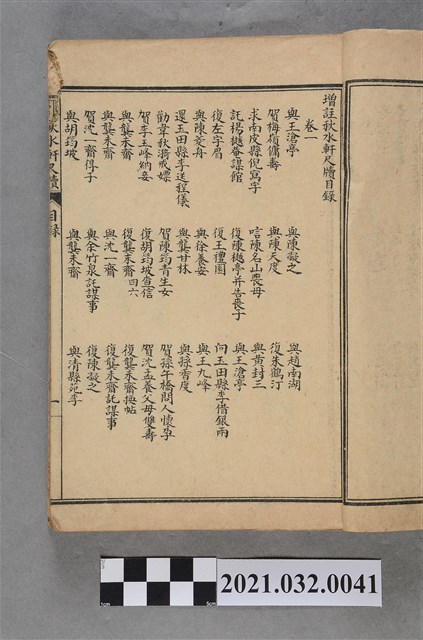 增註秋水軒尺牘目錄
卷一
與王滄亭 與陳凝之 與趙南湖
賀梅嶺傭壽 與陳天度 復朱鶴汀
求南皮縣倪寫字 唁陳名山喪母 與黃封三
託楊樾畬謀館 復陳樾亭并告喪子 與王滄亭
復左字眉 復王禮圃 向玉田縣李借銀兩
與陳菱舟 與徐養安 與王九峰
還玉田縣李送程儀 與龔甘林 與孫香度
勸韋秋漪戒嫖 賀陳筠青生女 賀孫午橋閏人懷孕
賀李玉峰納妾 復胡筠坡查信 賀沈孟養父母雙壽
與龔未齋 復龔未齋四六 復龔未齋換帖
與龔未齋 與沈一齋 復龔未齋託謀事
賀沈一齋得子 與余竹泉託謀事 復陳凝之
與胡筠坡 與龔未齋 與清縣苑李
秋水軒尺牘 目錄 一
1cm 5cm
2021.032.0041